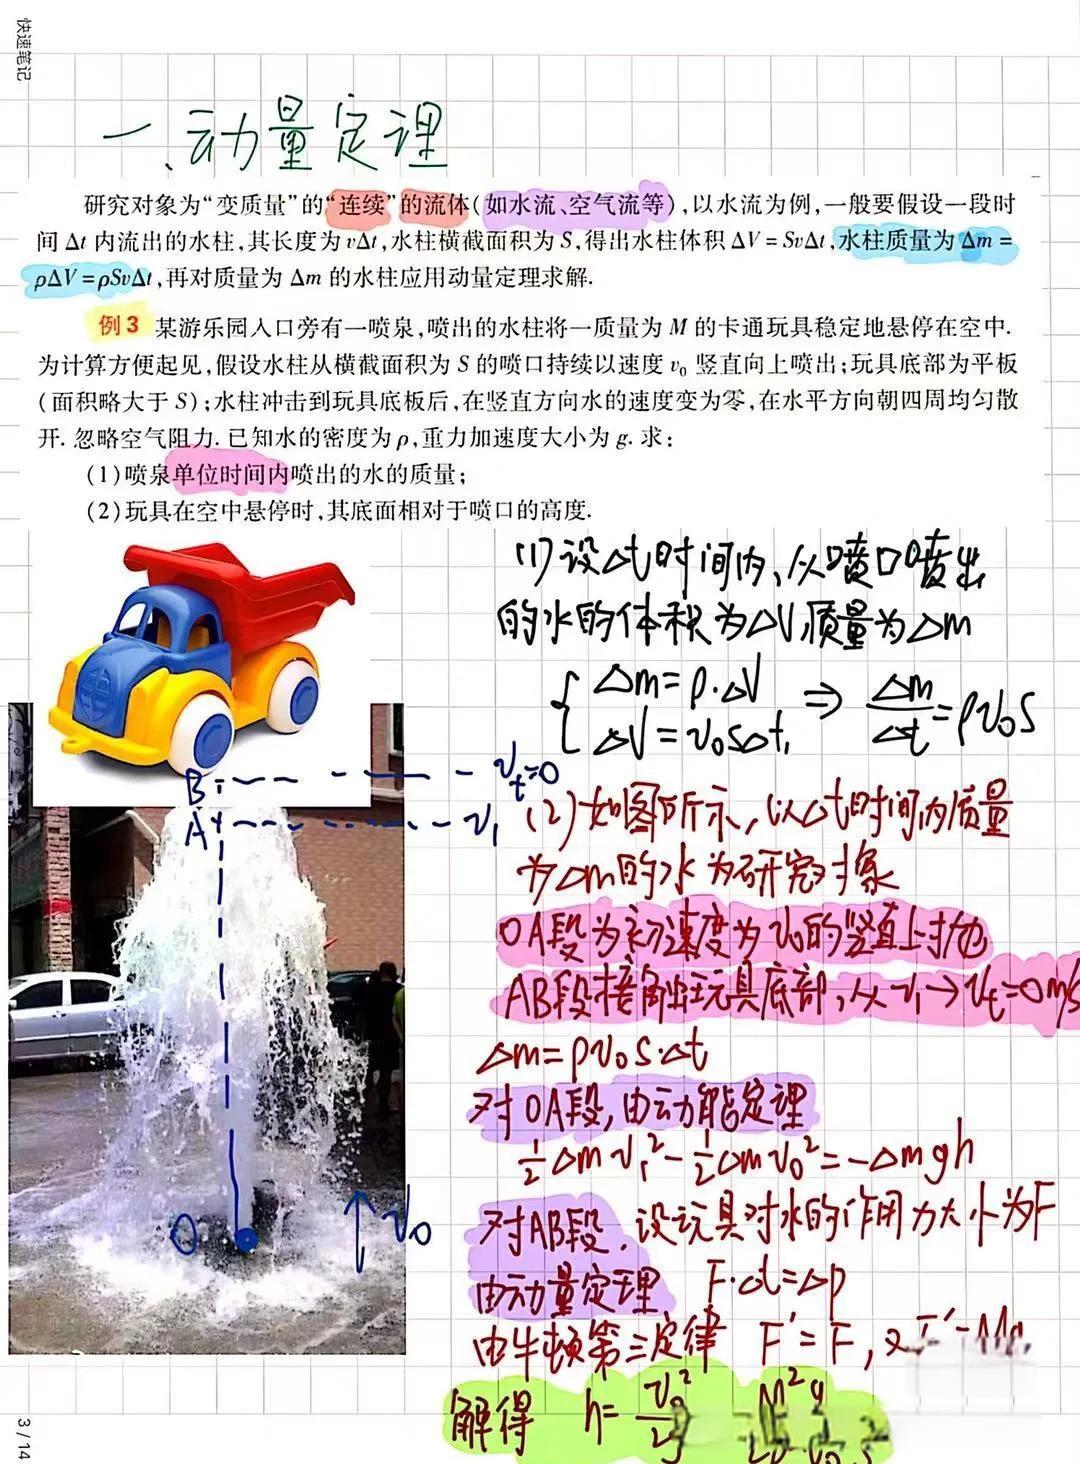 快速笔记
一、动量定理
研究对象为“变质量”的“连续”的流体(如水流、空气流等),以水流为例,一般要假设一段时
间 Δt 内流出的水柱,其长度为vΔt,水柱横截面积为S,得出水柱体积ΔV=SvΔt,水柱质量为Δm=
ρΔV=ρSvΔt,再对质量为 Δm 的水柱应用动量定理求解.
例3 某游乐园入口旁有一喷泉,喷出的水柱将一质量为 M 的卡通玩具稳定地悬停在空中.
为计算方便起见,假设水柱从横截面积为 S 的喷口持续以速度 v₀ 竖直向上喷出;玩具底部为平板
(面积略大于S);水柱冲击到玩具底板后,在竖直方向水的速度变为零,在水平方向朝四周均匀散
开.忽略空气阻力.已知水的密度为ρ,重力加速度大小为g.求:
(1)喷泉单位时间内喷出的水的质量;
(2)玩具在空中悬停时,其底面相对于喷口的高度.
(1)设Δt时间内,从喷口喷出
的水的体积为ΔV,质量为Δm
{Δm=ρ·ΔV
ΔV=v₀SΔt, ⇒ Δm/Δt=ρv₀S
B vt=0
A v₁
(2)如图所示,以Δt时间内质量
为Δm的水为研究对象
OA段为初速度为v₀的竖直上抛
AB段接触到玩具底部,从v₁→vt=0m/s
Δm=ρv₀S·Δt
对OA段,由动能定理
½Δmv₁²-½Δmv₀²=-Δmgh
O ↑v₀
对AB段,设玩具对水的作用力大小为F
由动量定理 F·Δt=Δp
由牛顿第三定律 F′=F,又F′=Mg
解得 h=v₀²
3/14